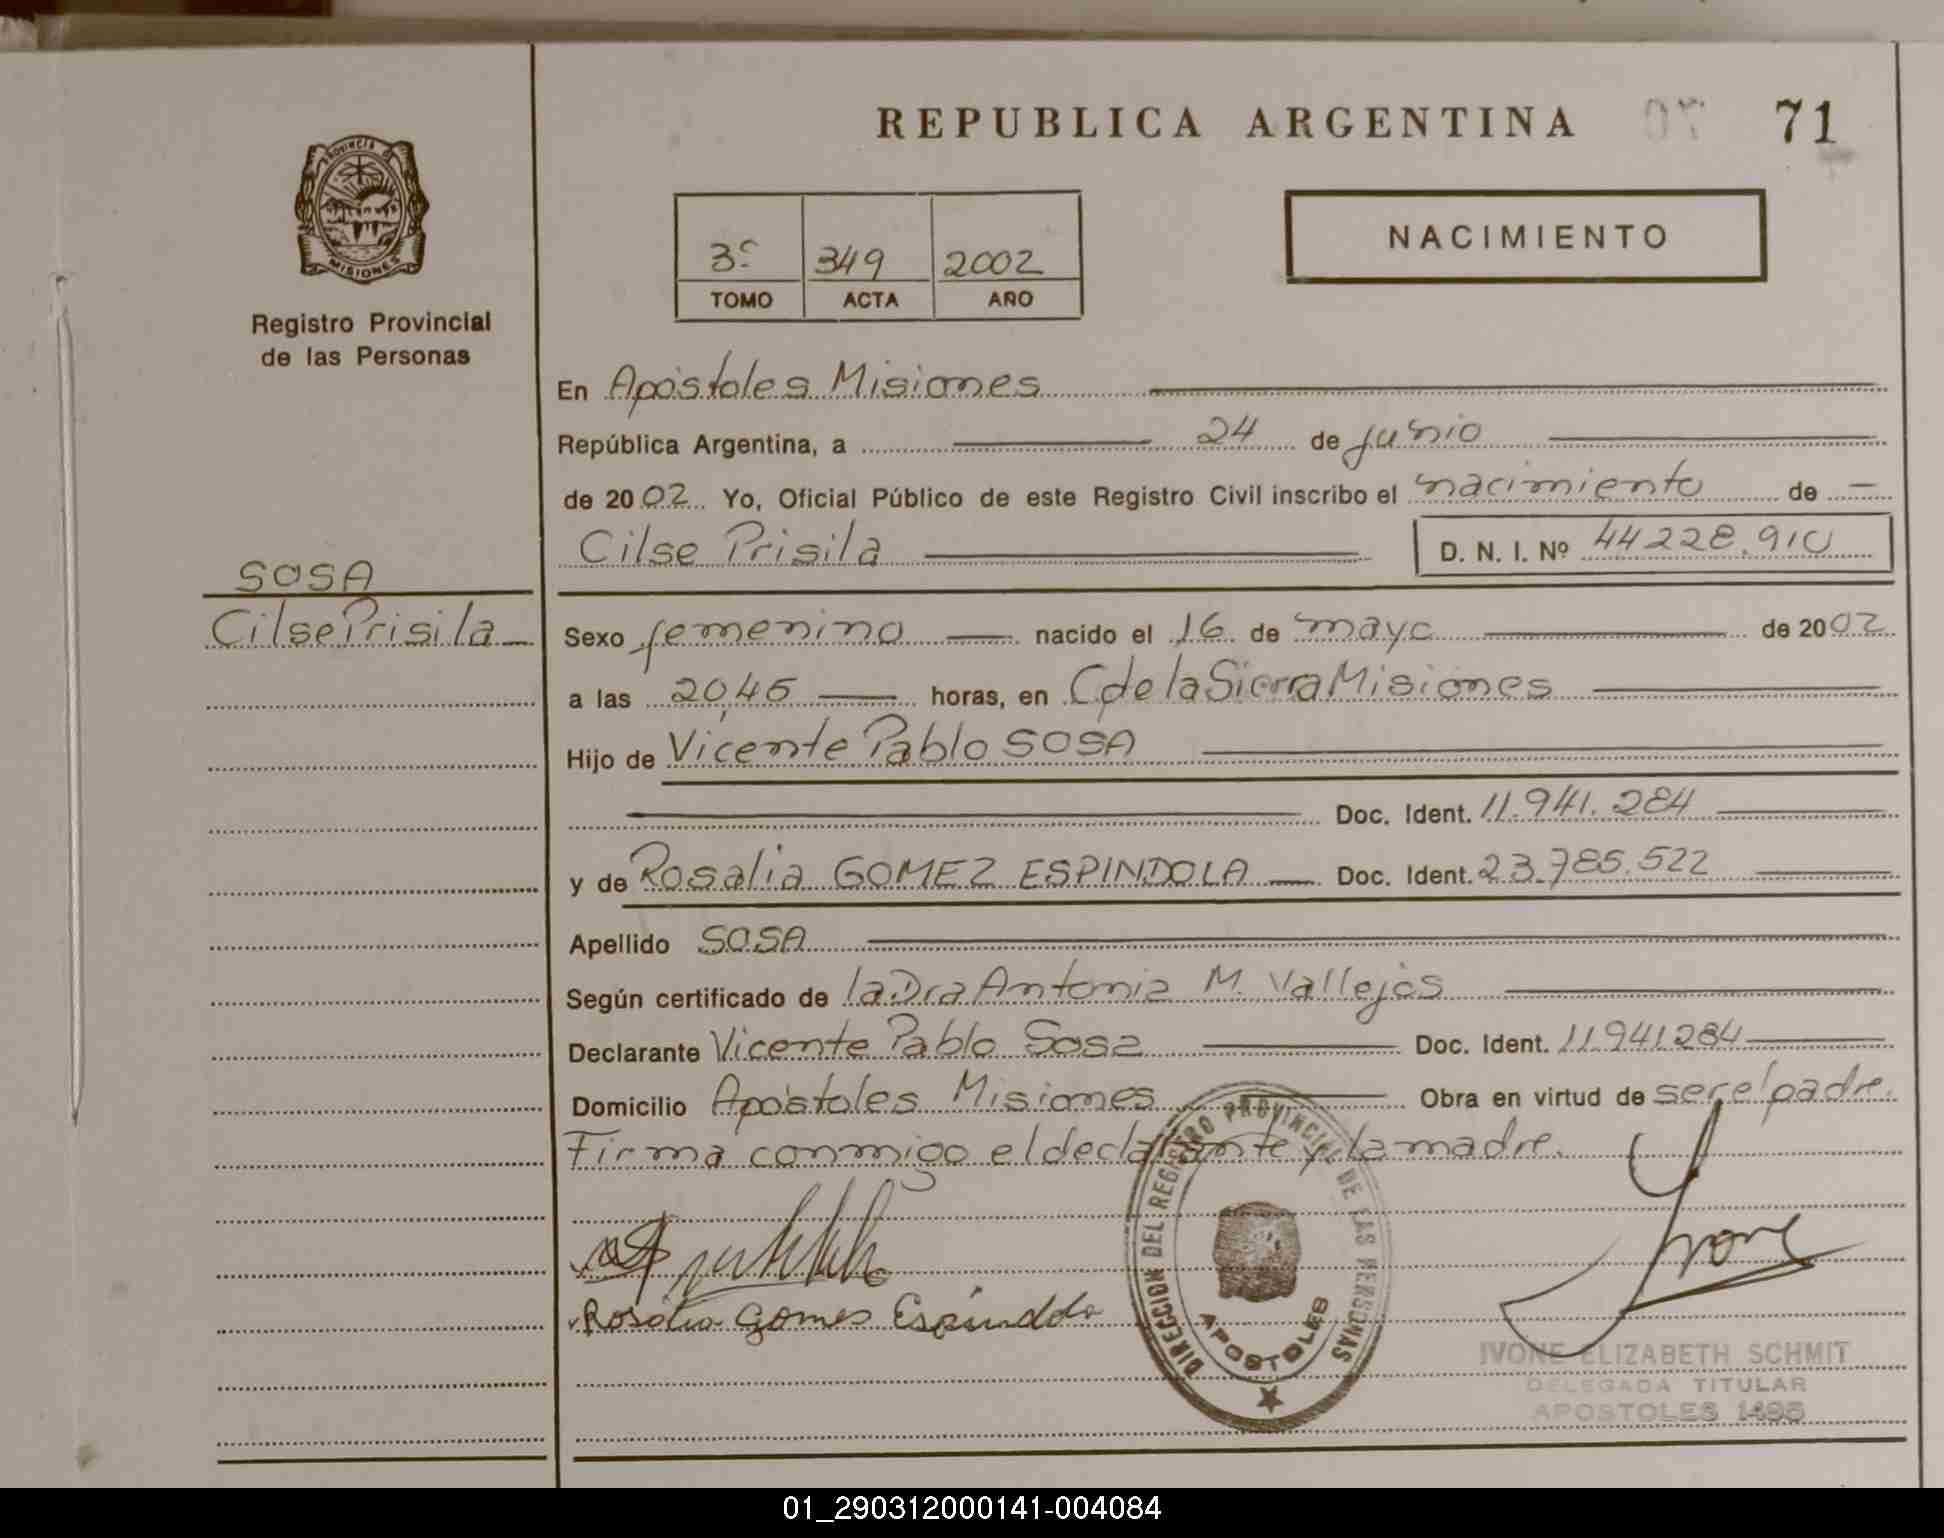 REPUBLICA ARGENTINA 71
PROVINCIA DE
MISIONES
Registro Provincial
de las Personas
NACIMIENTO
3º 349 2002
TOMO ACTA AÑO
En Apóstoles Misiones
República Argentina, a 24 de junio
de 2002 Yo, Oficial Público de este Registro Civil inscribo el nacimiento de
Cilse Prisila D. N. I. Nº 44228.910
SOSA
Cilse Prisila
Sexo femenino nacido el 16 de mayo de 2002
a las 20,45 horas, en C de la Sierra Misiones
Hijo de Vicente Pablo SOSA
Doc. Ident. 11.941.284
y de Rosalia GOMEZ ESPINDOLA Doc. Ident. 23.785.522
Apellido SOSA
Según certificado de la Dra Antonia M. Vallejos
Declarante Vicente Pablo Sosa Doc. Ident. 11.941284
Domicilio Apóstoles Misiones Obra en virtud de ser el padre.
Firma conmigo el declarante y la madre.
Rosalia Gomes Espindola
DIRECCION DEL REGISTRO PROVINCIAL DE LAS PERSONAS
APOSTOLES
Ivone
IVONE ELIZABETH SCHMIT
DELEGADA TITULAR
APOSTOLES 1495
01_290312000141-004084